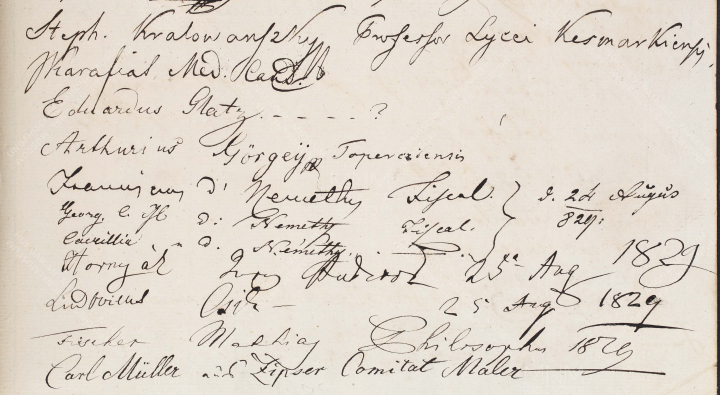 Steph. Kralowanszky Professor Lycei Kesmarkiensis,
Karafiát Med. Cand.
Eduardus Glatz. - - - - ?
Arthurius Görgeÿ Toperciensis
Franciscus d: Nemethy Fiscal. d. 24 Augus
Georg. C. d: Nemethy Fiscal. 829.
d. Némethy.
Hornyák 25 Aug 1829
Ludovicus 25 Aug 1829
Fischer Mathias Philosophus 1829
Carl Müller aus Zipser Comitat Maler